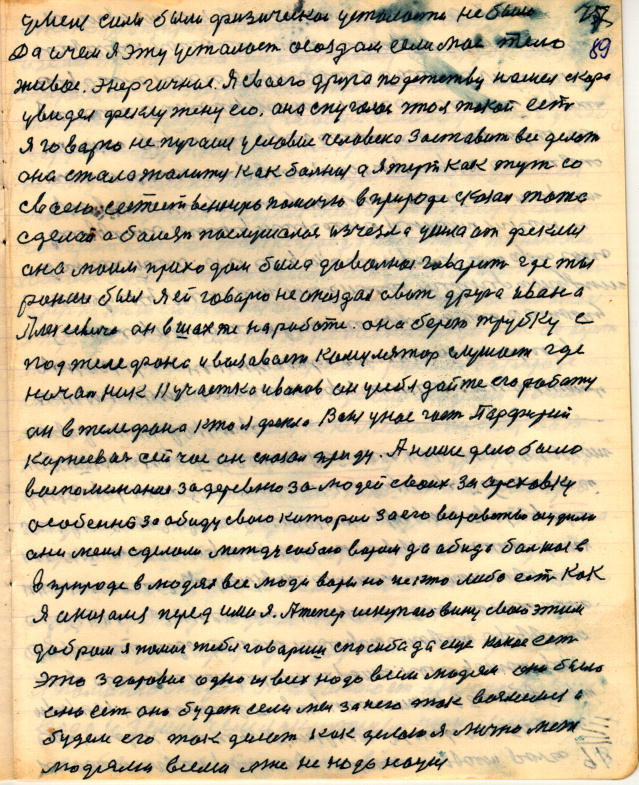 у меня силы были физическая усталости не было
89
Да и чем я эту усталост создам если мое тело
живое, энергичное. Я своего друга по детству нашел скоро
увидел феклу жену его. она спугалас што я такой есть
я говарю не пугайся условие человека заставит все делат
она стала жалится как болная а я терп как тут со
своею естественную помочю в природе сказал тоже
сделай а болезн послушалас изчезла ушла от феклы
она моим приходом была доволная говарит где ты
ранше был я ей говарю не опоздал а вот друга ивана
Алексеевича он в шахте на работе. она берет трубку с
под телефона и вызавает комулятор слушает где
началник 11 участка иванов он у себя дайте его работу
он в телефона кто я фекла Ваня у нас гост Парфирий
Карнеевич сейчас он сказал приду. А наше дело было
воспоминание за деревню за людей своих за ореховку
особенно за обиду свою которои за его воровство осудили
они меня сделали между собою вором да обида болная в
в природе в людях все люди воры но не кто либо ест как
я оказался перед ими я. А тепер искупаю вину свою этим
добром я помог тебя говариш способа да еще какое ест
это здоровие одно из всех надо всем людям оно было
оно ест оно будет если мы за него так возмемся и
будем его так делат как делаю я лично меж
людями всема